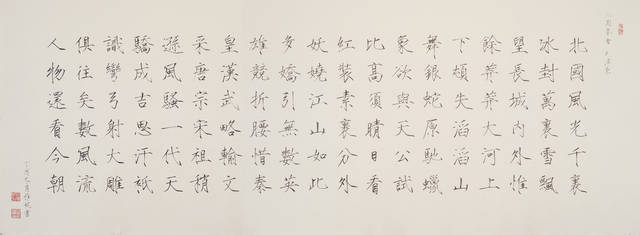 沁園春雪 毛澤東
北國風光千裏
冰封萬裏雪飄
望長城内外惟
餘莽莽大河上
下頓失滔滔山
舞銀蛇原馳蠟
象欲與天公試
比高須晴日看
紅裝素裹分外
妖嬈江山如此
多嬌引無數英
雄競折腰惜秦
皇漢武略輸文
采唐宗宋祖稍
遜風騷一代天
驕成吉思汗衹
識彎弓射大雕
俱往矣數風流
人物還看今朝